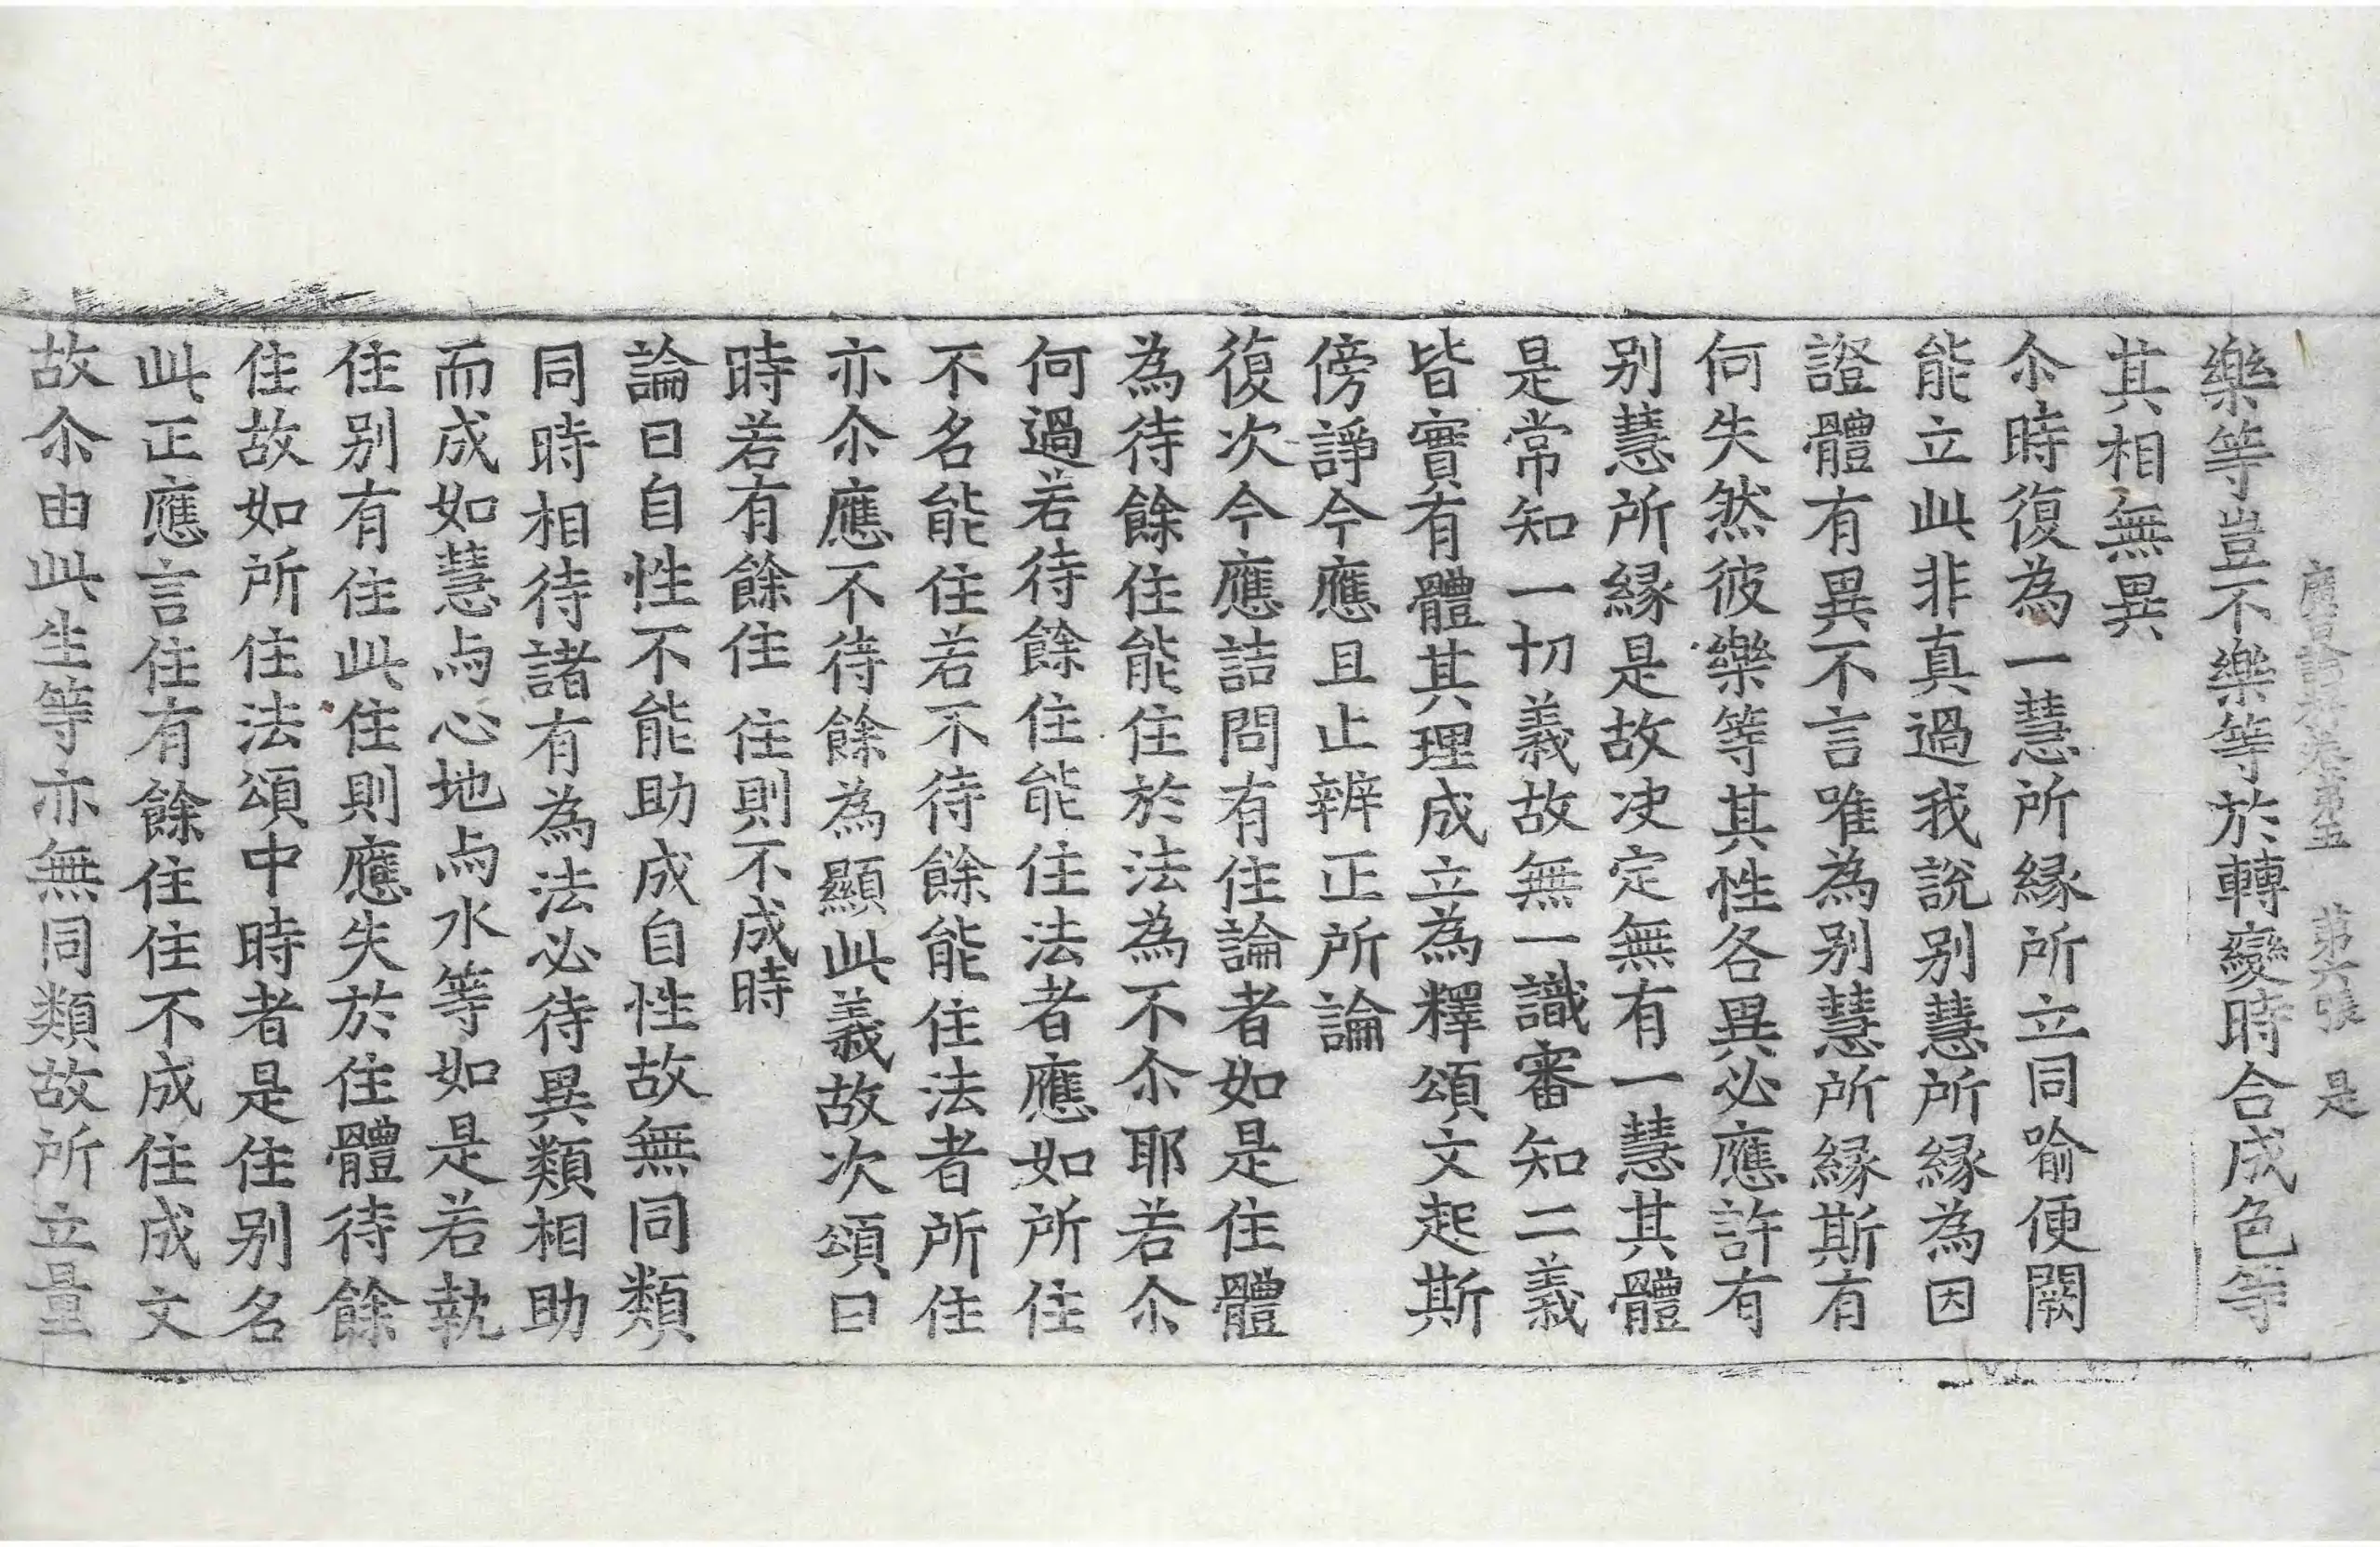 廣百論釋卷第五　第六張　是
樂等豈不樂等於轉變時合成色等
其相無異
尒時復為一慧所緣所立同喻便闕
能立此非真過我說别慧所緣為因
證體有異不言唯為别慧所緣斯有
何失然彼樂等其性各異必應許有
别慧所緣是故决定無有一慧其體
是常知一切義故無一識審知二義
皆實有體其理成立為釋頌文起斯
傍諍今應且止辨正所論
復次今應詰問有住論者如是住體
為待餘住能住於法為不尒耶若尒
何過若待餘住能住法者應如所住
不名能住若不待餘能住法者所住
亦尒應不待餘為顯此義故次頌曰
時若有餘住　住則不成時
論曰自性不能助成自性故無同類
同時相待諸有為法必待異類相助
而成如慧与心地与水等如是若執
住别有住此住則應失於住體待餘
住故如所住法頌中時者是住别名
此正應言住有餘住住不成住成文
故尒由此生等亦無同類故所立量